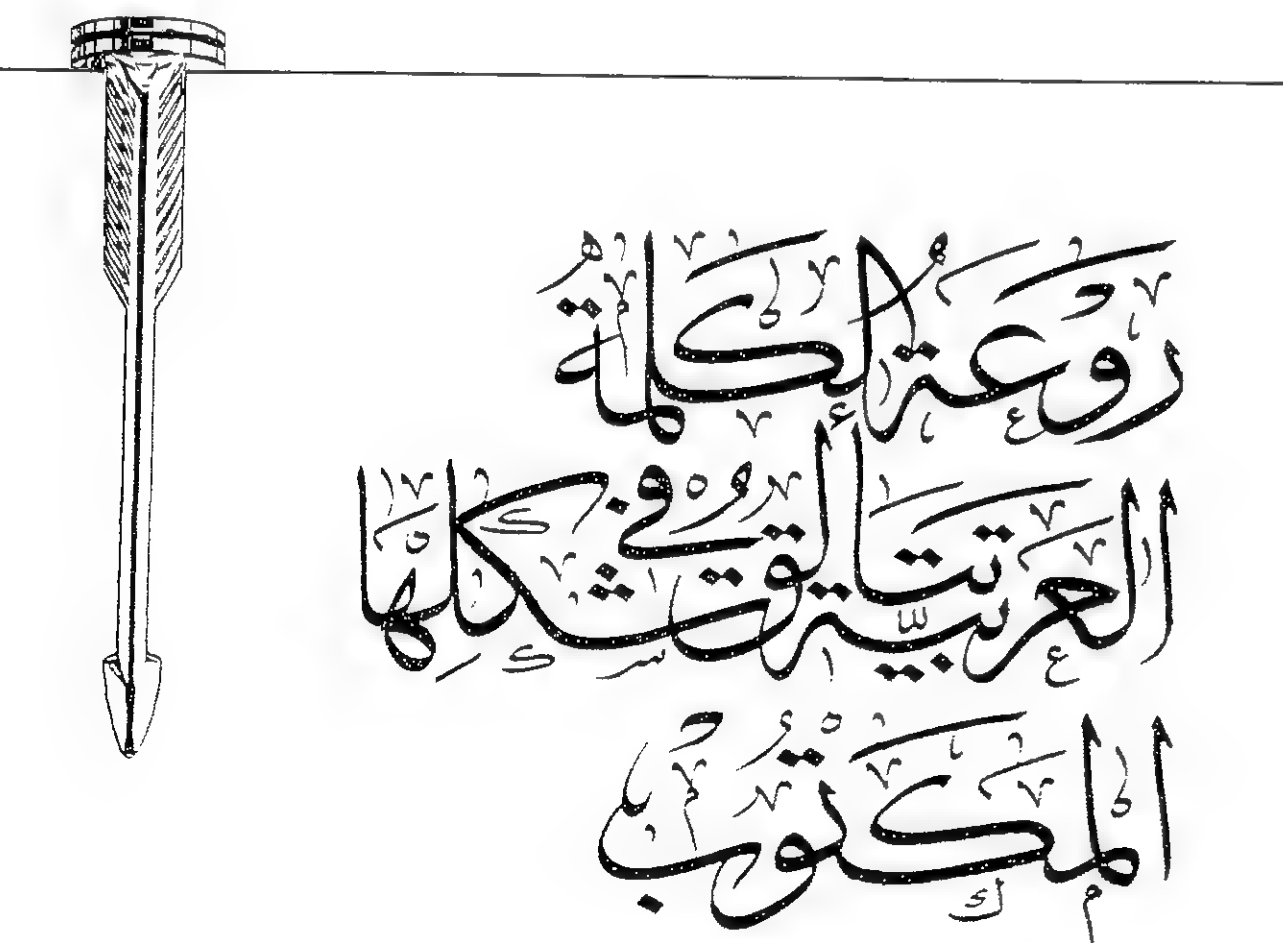 روعة الكلمة
العربية تتألق في شكلها
المكتوب